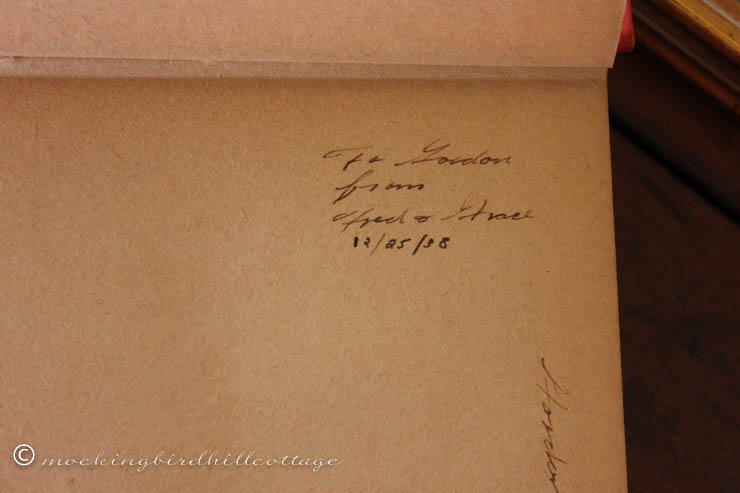 To Gordon
from
Fred & Grace
12/25/38
© mockingbirdhillcottage